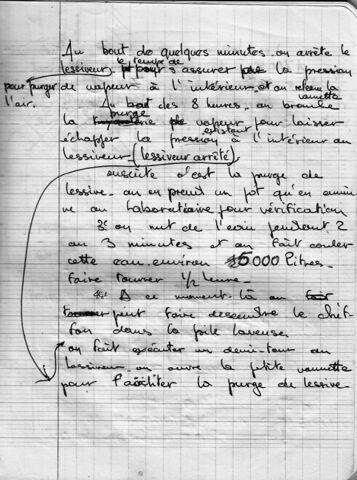 Au bout de quelques minutes on arrête le
le temps de
lessiveur pour s'assurer la pression
pour purger de vapeur à l'intérieur et on referme la
l'air. vannette
Au bout des 8 heures, on branche
purge
la vapeur pour laisser
existant
échapper la pression à l'intérieur du
lessiveur (lessiveur arrêté)
ensuite c'est la purge de
lessive on en preuil un pot qu'on amin
ve au laboratoire pour vérification
on met de l'eau pendent 2
au 3 minutes et on fait couler
cette eau environ 5000 litres.
faire tourner 1/2 heure.
A ce moment là on
peut faire descendre le chif-
fon dans la pile laveuse
on fait exécuter un demi-tour au
lessiveur on ouvre la petite vannette
pour faciliter la purge de lessive